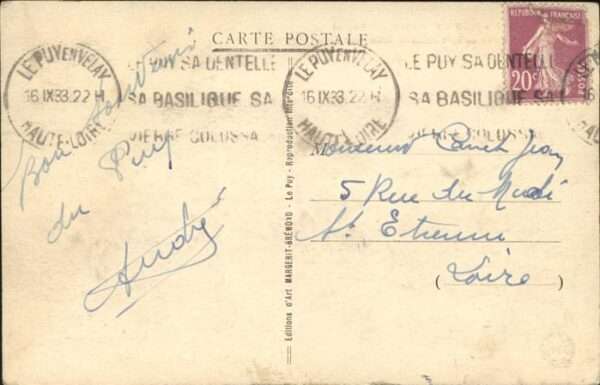 CARTE POSTALE
REPUBLIQUE FRANÇAISE
20c
POSTES
LE PUY EN VELAY
16 IX33.22 H
HAUTE-LOIRE
LE PUY SA DENTELLE
SA BASILIQUE SA
VIERGE COLOSSA
LE PUY EN VELAY
16 IX33.22 H
HAUTE-LOIRE
LE PUY SA DENTELLE
SA BASILIQUE SA
VIERGE COLOSSA
Bon Souvenir
du Puy
André
Editions d'Art MARGERIT-BRÉMOND - Le Puy - Reproduction interdite
Monsieur Jean
5 Rue du Midi
St Etienne
Loire
( )